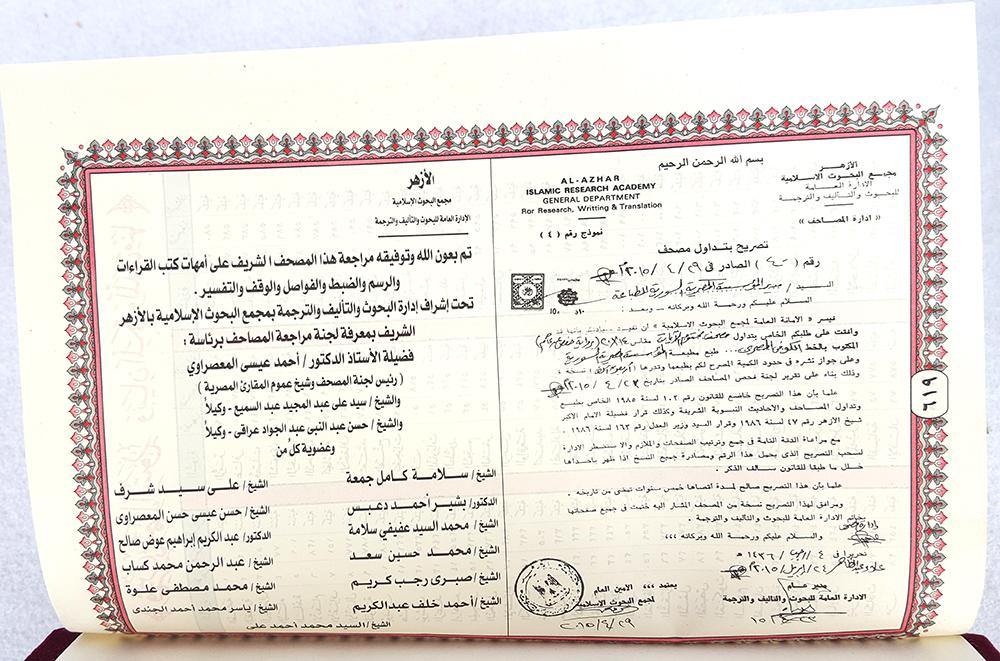 الأزهر
مجمع البحوث الاسلامية
الادارة العامة
للبحوث والتأليف والترجمة
« ادارة المصاحف »
بسم الله الرحمن الرحيم
AL-AZHAR
ISLAMIC RESEARCH ACADEMY
GENERAL DEPARTMENT
Ror Research, Writting & Translation
نموذج رقم ( ٤ )
تصريح بتداول مصحف
رقم ( ) الصادر فى ٢٩ / ٤ / ٢٠١٥م
السيد /
السلام عليكم ورحمة الله وبركاته .. وبعد :
فيسر « الامانة العامة لمجمع البحوث الاسلامية » ان تفيد سيادتكم بأنها قد
وافقت على طلبكم الخاص بتداول مصحف مقاس
المكتوب بالخط طبع مطبعة
وعلى جواز نشره فى حدود الكمية المصرح لكم بطبعها وقدرها ( ) نسخة ،
وذلك بناء على تقرير لجنة فحص المصاحف الصادر بتاريخ ٢٣ / ٤ / ٢٠١٥م
علما بأن هذا التصريح خاضع للقانون رقم ١٠٢ لسنة ١٩٨٥ الخاص بطبع
وتداول المصاحف والاحاديث النبوية الشريفة وكذلك قرار فضيلة الامام الاكبر
شيخ الأزهر رقم ٤٧ لسنة ١٩٨٦ وقرار السيد وزير العدل رقم ١٦٣ لسنة ١٩٨٦ .
مع مراعاة الدقة التامة فى جمع وترتيب الصفحات والملازم والا ستضطر الادارة
لسحب التصريح الذى يحمل هذا الرقم ومصادرة جميع النسخ اذا ظهر باحداها
خلل ما طبقا للقانون سالف الذكر .
علما بأن هذا التصريح صالح لمدة اقصاها خمس سنوات تمضى من تاريخه .
ومرافق لهذا التصريح نسخة من المصحف المشار اليه ختمت فى جميع صفحاتها
بخاتم الادارة العامة للبحوث والتأليف والترجمة .
والسلام عليكم ورحمة الله وبركاته ،،،
تحريرا فى ٤ / رجب / ١٤٣٦ هـ
٢٠١٥م
مدير عام
الادارة العامة للبحوث والتأليف والترجمة
يعتمد ،،، الامين العام
لمجمع البحوث الاسلامية
٢٠١٥/٤/٢٩
٦١٩
الأزهر
مجمع البحوث الإسلامية
الإدارة العامة للبحوث والتأليف والترجمة
تم بعون الله وتوفيقه مراجعة هذا المصحف الشريف على أمهات كتب القراءات
والرسم والضبط والفواصل والوقف والتفسير .
تحت إشراف إدارة البحوث والتأليف والترجمة بمجمع البحوث الإسلامية بالأزهر
الشريف بمعرفة لجنة مراجعة المصاحف برئاسة :
فضيلة الأستاذ الدكتور / أحمد عيسى المعصراوي
( رئيس لجنة المصحف وشيخ عموم المقارئ المصرية )
والشيخ / سيد على عبد المجيد عبد السميع - وكيلاً
والشيخ / حسن عبد النبى عبد الجواد عراقى - وكيلاً
وعضوية كل من
الشيخ / سلامة كامل جمعة الشيخ / على سيد شرف
الدكتور/ بشير أحمد دعبس الشيخ / حسن عيسى حسن المعصراوى
الشيخ / محمد السيد عفيفي سلامة الدكتور/ عبد الكريم إبراهيم عوض صالح
الشيخ / محمد حسين سعد الشيخ / عبد الرحمن محمد كساب
الشيخ / صبرى رجب كريم الشيخ / محمد مصطفى علوة
الشيخ / أحمد خلف عبدالكريم الشيخ / ياسر محمد أحمد الجندى
الشيخ / السيد محمد أحمد على